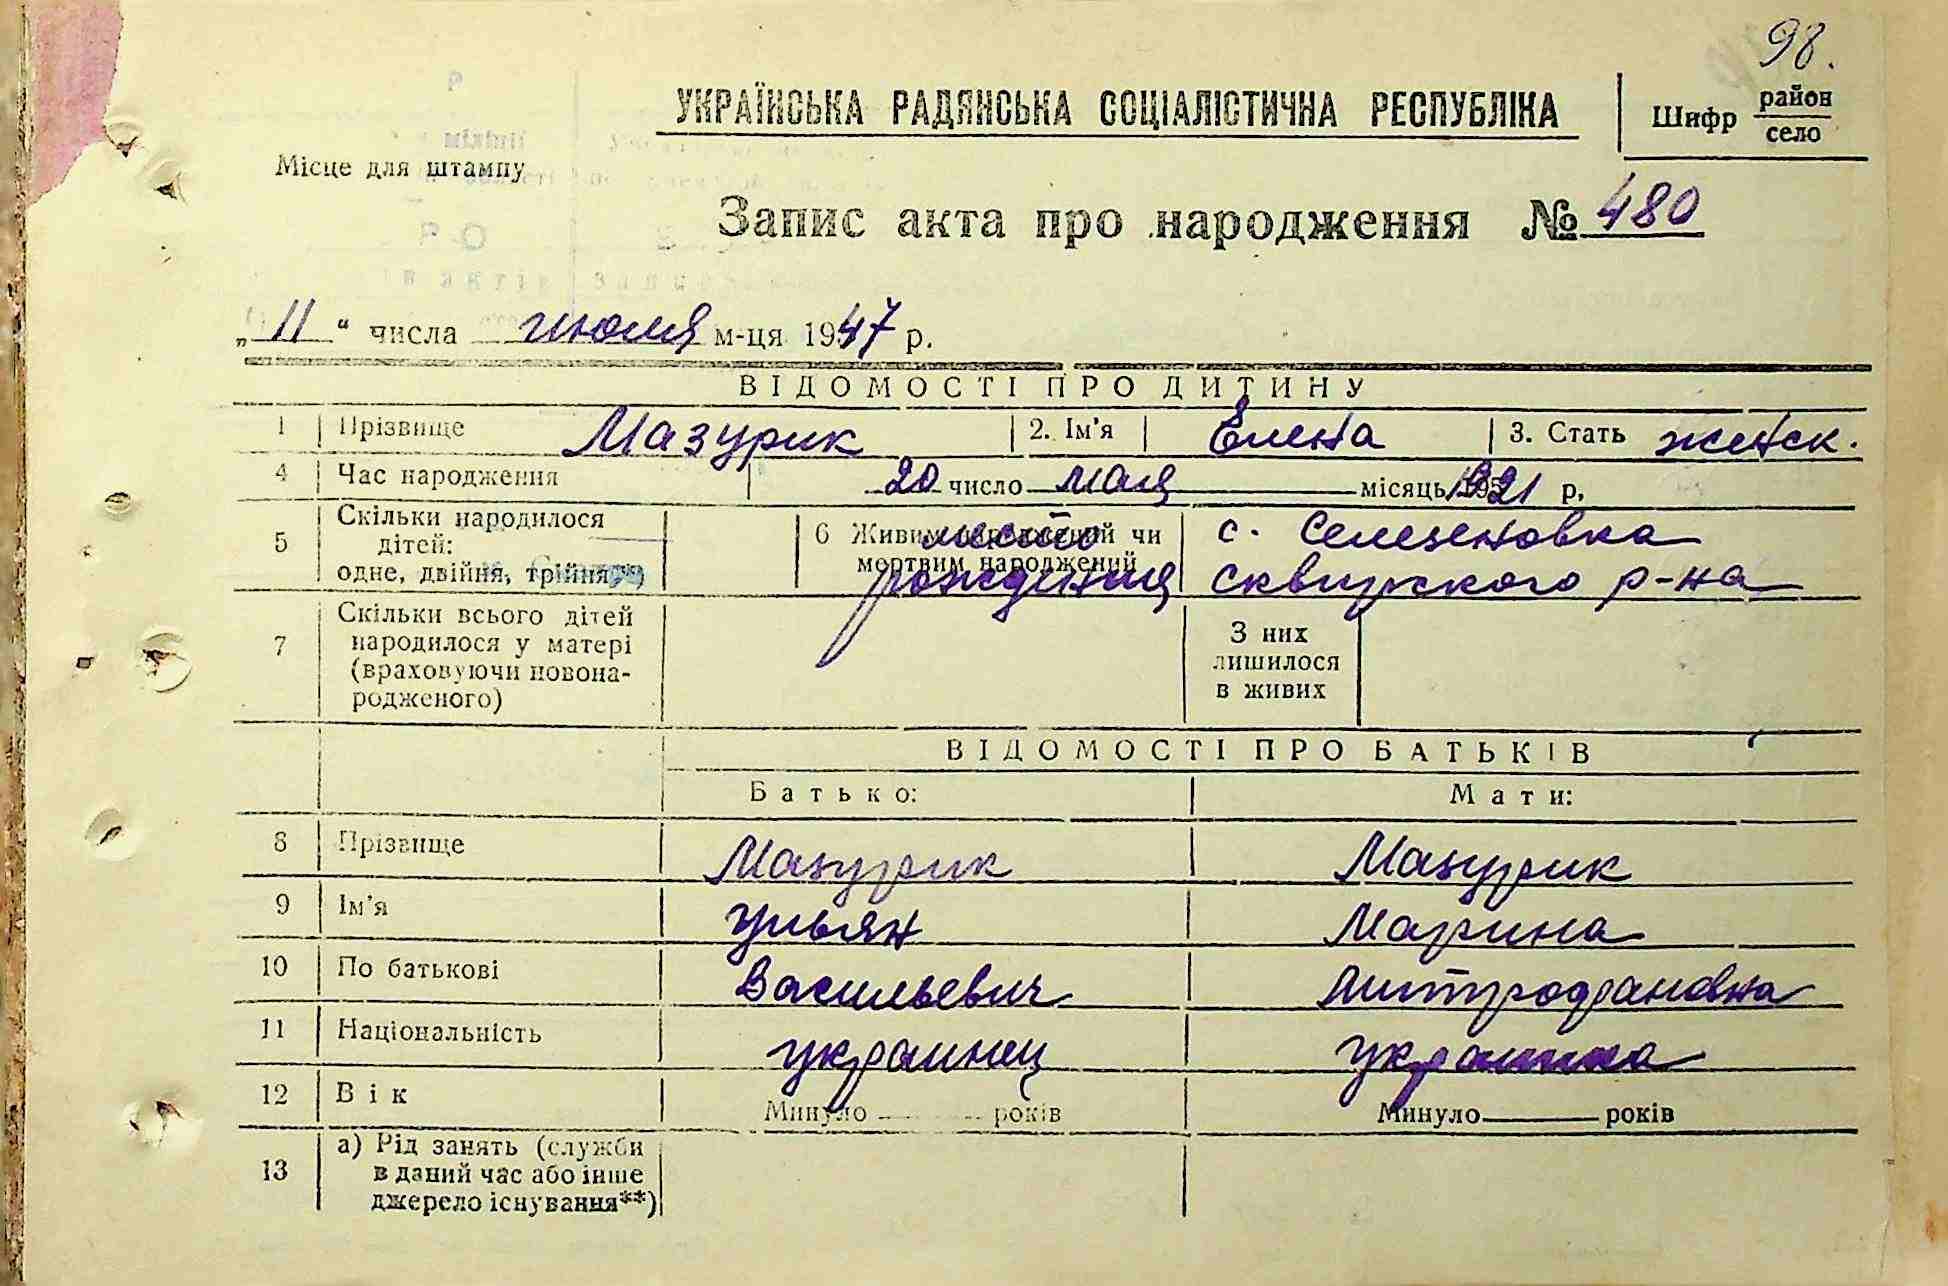 98.
УКРАЇНСЬКА РАДЯНСЬКА СОЦІАЛІСТИЧНА РЕСПУБЛІКА
Шифр район
село
Місце для штампу
Запис акта про народження № 480
„ 11 “ числа июля м-ця 1947 р.
ВІДОМОСТІ ПРО ДИТИНУ
1 Прізвище Мазурик 2. Ім’я Елена 3. Стать женск.
4 Час народження 20 число мая місяць 1921 р.
5 Скільки народилося дітей: одне, двійня, трійня**)
6 Живим народжений чи мертвим народжений
место рождения
с. Селезеновка
Сквирского р-на
7 Скільки всього дітей народилося у матері (враховуючи новонародженого)
З них лишилося в живих
ВІДОМОСТІ ПРО БАТЬКІВ
Батько: Мати:
8 Прізвище Мазурик Мазурик
9 Ім’я Ульян Марина
10 По батькові Васильевич Митрофановна
11 Національність украинец украинка
12 Вік Минуло років Минуло років
13 а) Рід занять (служби
в даний час або інше
джерело існування**)